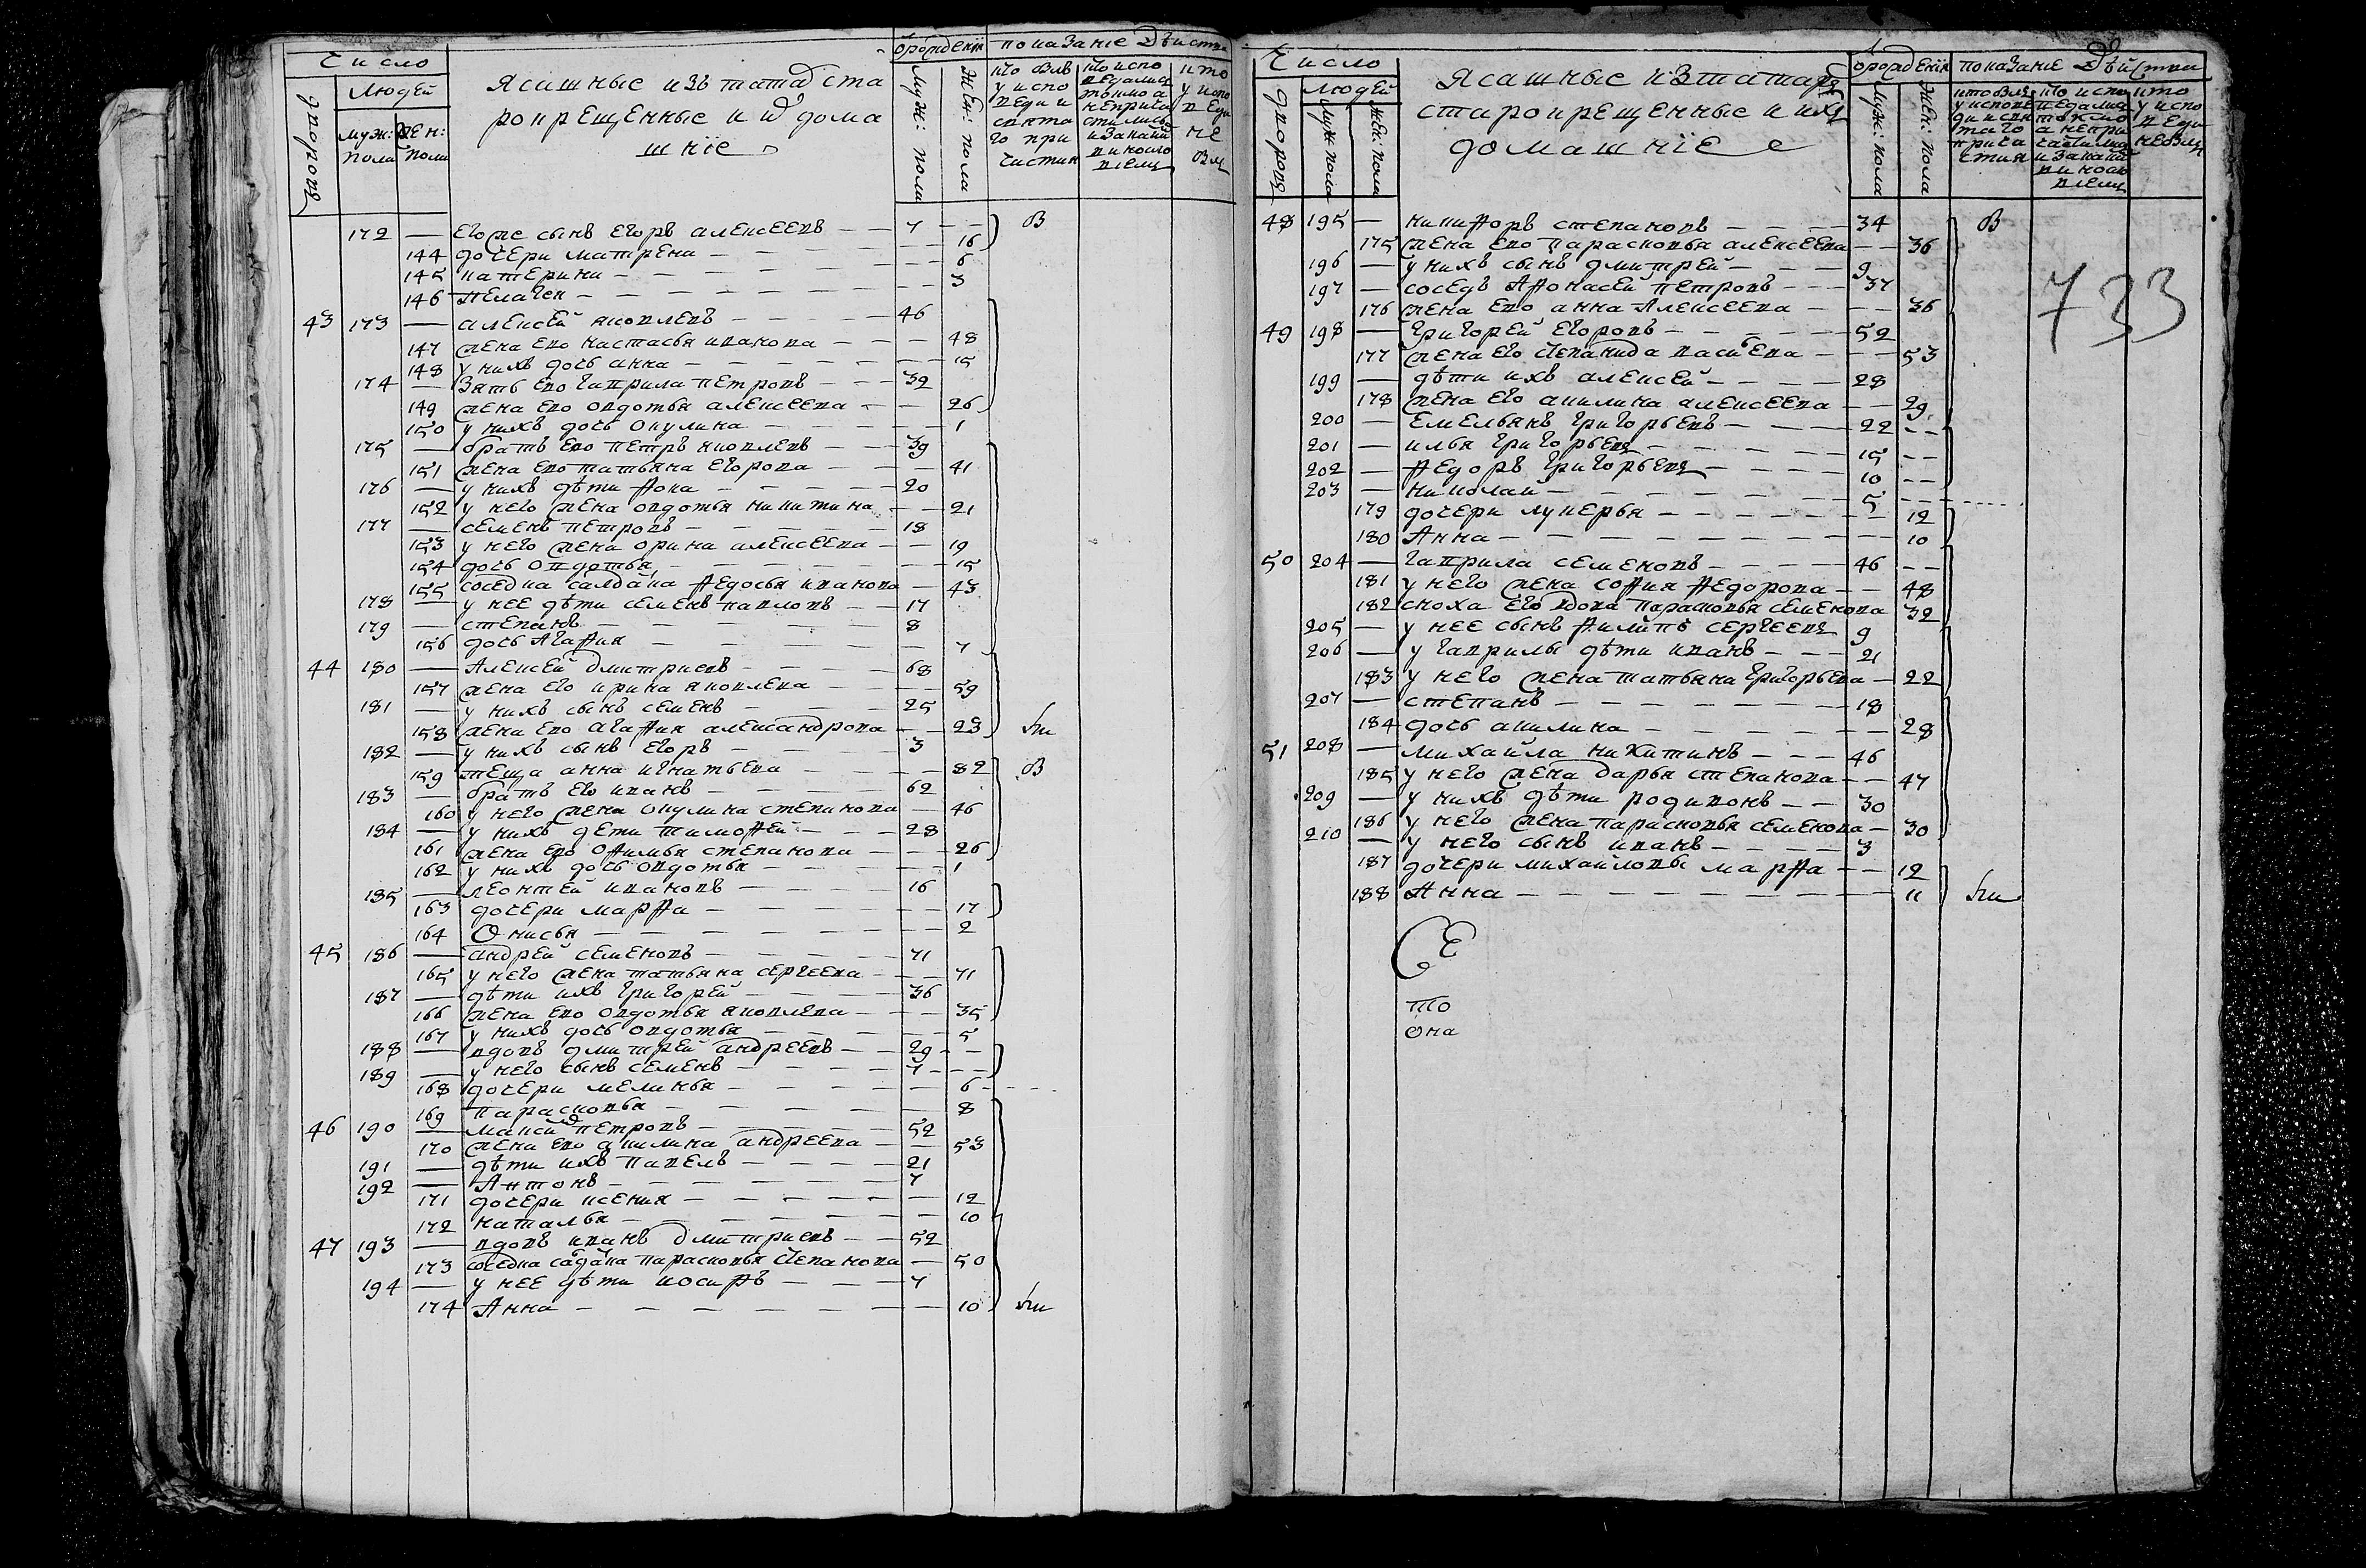 Число
Людей
дворовъ
муж: пола
жен: пола
Ясашные изъ татаръ ста
рокрещенные и их дома
шніе
ѿрожденія
муж: пола
Жен: пола
показаніе действа
кто былъ
у испо
веди и
свята
го при
чистия
кто испо
ведалис
токмо а
неприча
стились
и за каки
ви носло
віемъ
кто
у испо
веди
не
был
172 — егоже сынъ егоръ алексеевъ — — 7 — — В
144 дочери матрена — — 16
145 катерина — — 6
146 пелагея — — 3
43 173 — алексей яковлевъ — — 46
147 жена его настасья иванова — — 48
148 у нихъ дочь анна — — 15
174 — зять его гаврила петровъ — — 32
149 жена его овдотья алексеева — — 26
150 у нихъ дочь окулина — — 1
175 — братъ его петръ яковлевъ — — 39
151 жена его татьяна егорова — — 41
176 — у нихъ дѣти фока — — 20
152 у него жена овдотья никитина — — 21
177 — семенъ петровъ — — 18
153 у него жена орина алексеева — — 19
154 дочь овдотья — — 15
155 соседка салдатка федосья иванова — 43
178 — у нее дѣти семенъ павловъ — — 17
179 — степанъ — — 8
156 дочь агафия — — 7
44 180 — Алексей дмитриевъ — — 68
157 жена его ирина яковлева — — 59
181 — у нихъ сынъ семенъ — — 25
158 жена его агафия александрова — — 23
182 — у нихъ сынъ егоръ — — 3
159 теща анна игнатьева — — 82 В
183 — братъ его иванъ — — 62
160 у него жена окулина степанова — 46
184 — у нихъ дети тимофей — — 28
161 жена его офимья степанова — — 26
162 у нихъ дочь овдотья — — 1
185 — леонтей ивановъ — — 16
163 дочери марфа — — 17
164 Онисья — — 2
45 186 — андрей семеновъ — — 71
165 у него жена татьяна сергеева — — 71
187 — дѣти ихъ григорей — — 36
166 жена его овдотья яковлева — — 35
167 у нихъ дочь овдотья — — 5
188 — вдовъ дмитрей андреевъ — — 29 — —
189 — у него сынъ семенъ — — 7 — —
168 дочери меланья — — 6
169 парасковья — — 8
46 190 — петровъ — — 52
170 жена его акилина андреева — — 53
191 — дѣти ихъ павелъ — — 21
192 — Антонъ — — 7
171 дочери ксения — — 12
172 наталья — — 10
47 193 — вдовъ иванъ дмитриевъ — — 52
173 соседка парасковья степанова — 50
194 — у нее дѣти иосифъ — — 7
174 Анна — — 10
Число
Людей
дворовъ
муж пола
жен: пола
Ясашные изъ татаръ
старокрещенные и ихъ
домашніе
ѿрожденія
муж: пола
Жен: пола
показаніе действа
48 195 — никифоръ степановъ — — 34 В
175 жена его парасковья алексеева — — 36
196 — у нихъ сынъ дмитрей — — 9
197 — соседъ Афонасей петровъ — — 37
176 жена его анна Алексеева — — 36
49 198 — Григорей егоровъ — — 52
177 жена его степанида васильева — — 53
199 — дѣти ихъ алексей — — 28
178 жена его акилина алексеева — — 29
200 — емельянъ григорьевъ — — 22 — —
201 — илья григорьевъ — — 15 — —
202 — федоръ григорьевъ — — 10 — —
203 — николай — — 5
179 дочери лукерья — — 12
180 Анна — — 10
50 204 — гаврила семеновъ — — 46 — —
181 у него жена софия федорова — — 48
182 сноха его вдова парасковья семенова 32
205 — у нее сынъ филипъ сергеевъ 9
206 — у гаврилы дѣти иванъ — — 21
183 у него жена татьяна григорьева — 22
207 — степанъ — — 18
184 дочь акилина — — 28
51 208 — михайла никитинъ — — 46
185 у него жена дарья степанова — — 47
209 — у нихъ дѣти родивонъ — — 30
186 у него жена парасковья семенова — 30
210 — у него сынъ иванъ — — 3
187 дочери михайловы марфа — — 12
188 Анна — — 11
то
она
733